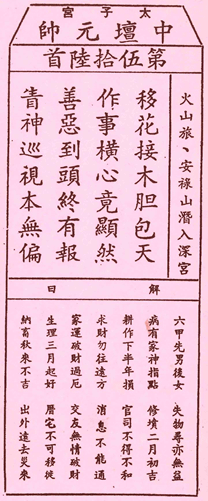 太子宮
中壇元帥
第伍拾陸首
火山旅、安祿山潛入深宮
移花接木胆包天
作事橫心竟顯然
善惡到頭終有報
青神巡視本無偏
解曰
六甲先男後女 失物尋亦無益
病有家神指點 修墳二月初吉
耕作下半年損 官司不得不和
求財勿往遠方 消息不能通
家運破財過厄 交友無情破財
生理三月起好 曆宅不可移徙
納畜秋來不吉 出外遠去災來